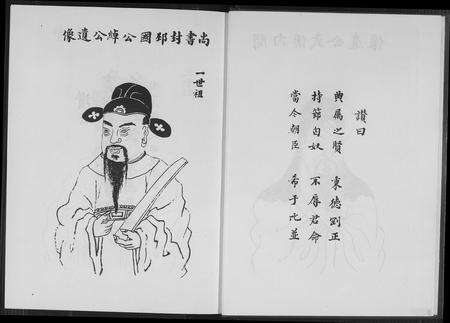 尚書封邳國公綽公遺像
一世祖
讚曰
典屬之賢 秉德剛正
持節匈奴 不辱君命
當今朝臣 希于比並